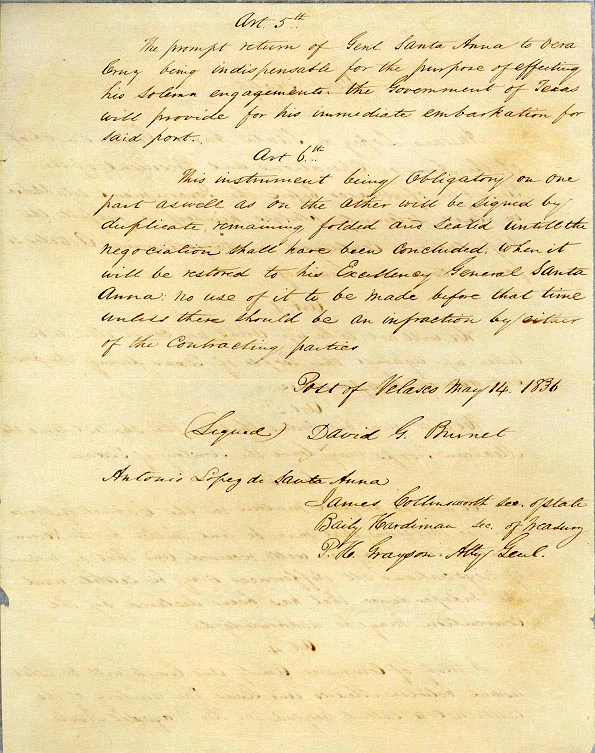 Art 5th
The prompt return of Genl Santa Anna to Vera
Cruz being indispensable for the purpose of effecting
his solemn engagements. the Government of Texas
will provide for his immediate embarkation for
said port.
Art 6th
This instrument being Obligatory on one
part aswell as on the other will be signed by
duplicate, remaining folded and sealed untill the
negociation shall have been concluded, when it
will be restored to his Excellency General Santa
Anna: no use of it to be made before that time
unless there should be an infraction by either
of the Contracting parties
Post of Velasco May 14. 1836
(Signed) David G. Burnet
Antonio Lopez de Santa Anna
James Collinsworth sec. of state
Baily Hardiman sec. of Treasury
P. H. Grayson - Atty Genl.